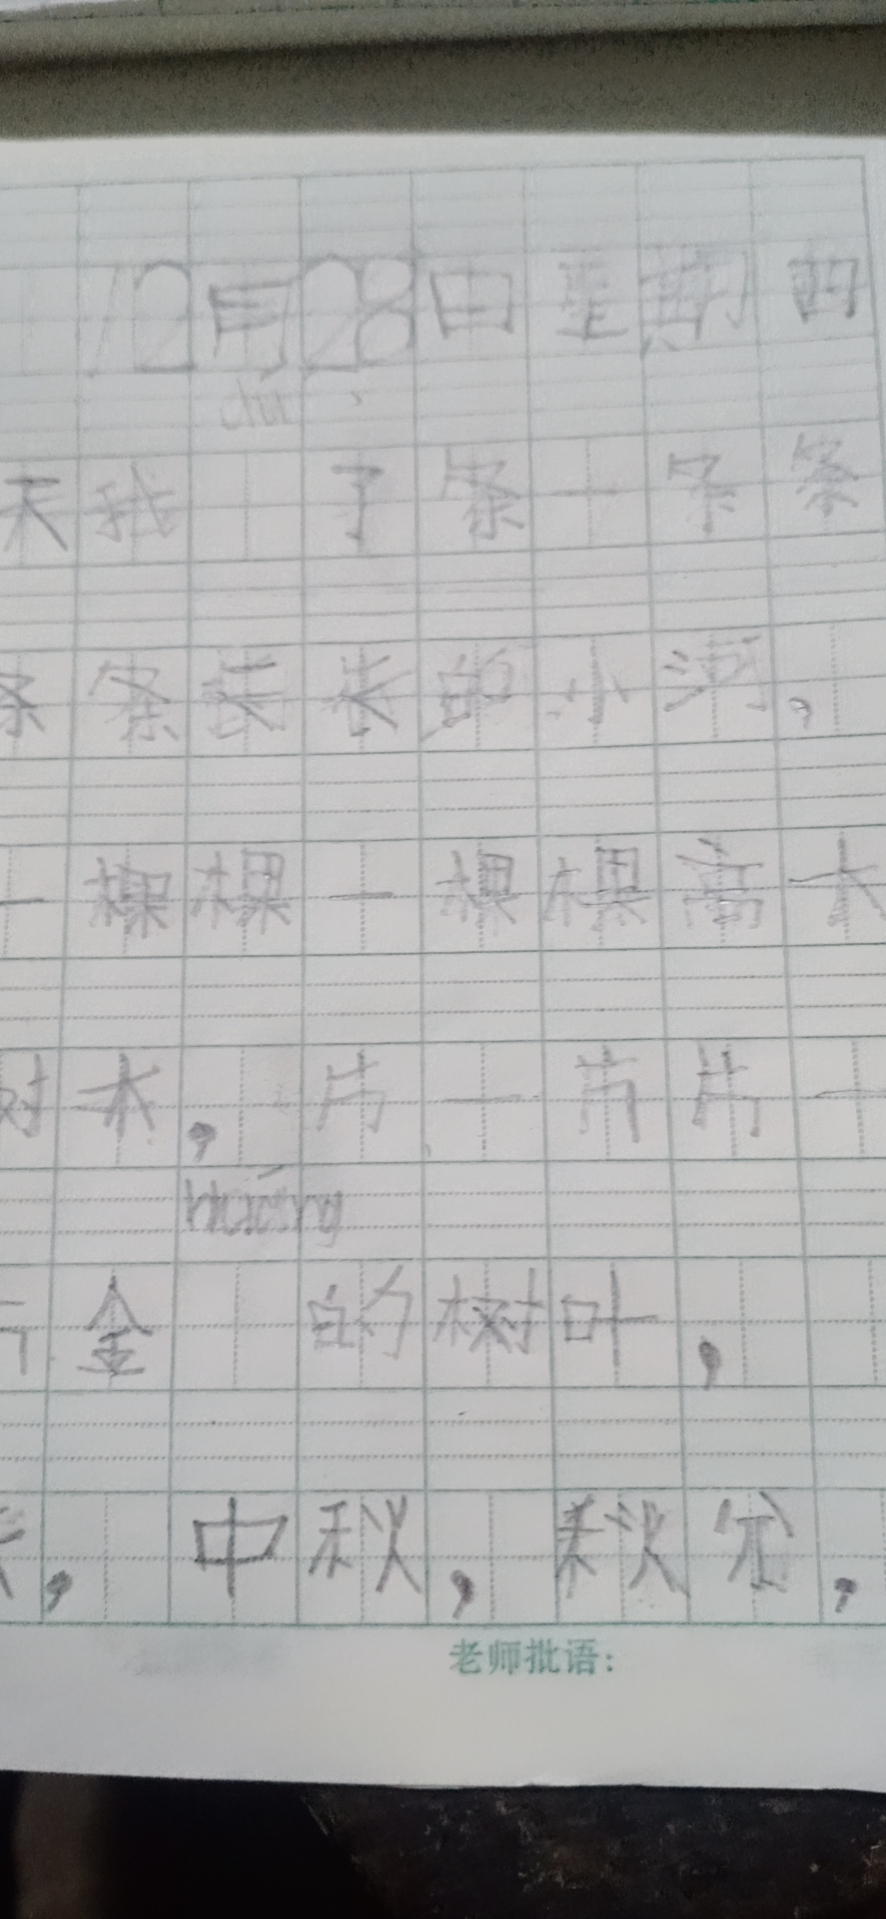 12月28日星期四
chú
天我 了条一条条
条条长长的小河,
一棵棵一棵棵高大
树木, 片一片片一
huáng
片金 的树叶,
, 中秋, 秋分,
老师批语: